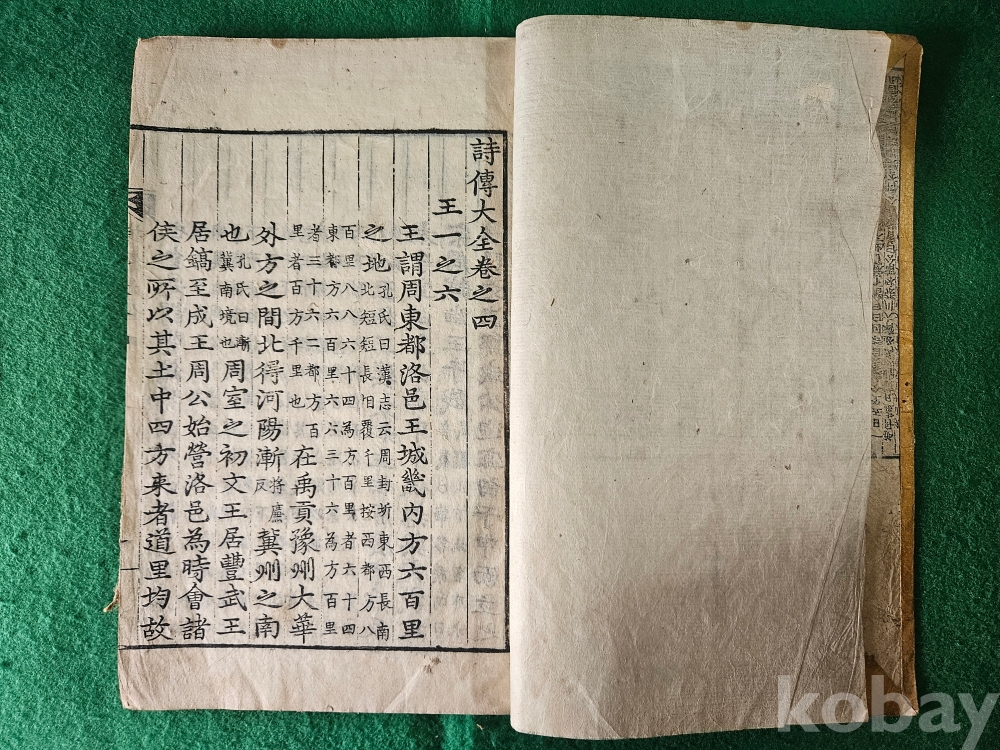 詩傳大全卷之四
王一之六
王謂周東都洛邑王城畿內方六百里
之地孔氏曰漢志云周封圻東西長南
北短短長相覆千里按西都方八
百里八八六十四為方百里者六十四
東都方六百里六六三十六為方百里
者三十六二都方百
里者百方千里也在禹貢豫州大華
外方之間北得河陽漸將廉反冀州之南
也孔氏曰漸冀南境也周室之初文王居豐武王
居鎬至成王周公始營洛邑為時會諸
侯之所以其土中四方來者道里均故
kobay